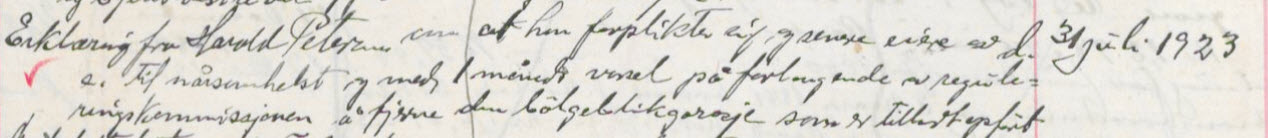 Erklæring fra Harald Petersen om at han forplikter sig og senere eiere av d. 31 juli 1923
e. til nårsomhelst og med 1 måneds varsel på forlangende av regule=
ringskommissjonen å fjerne den bölgeblikgarasje som er tillatt opført